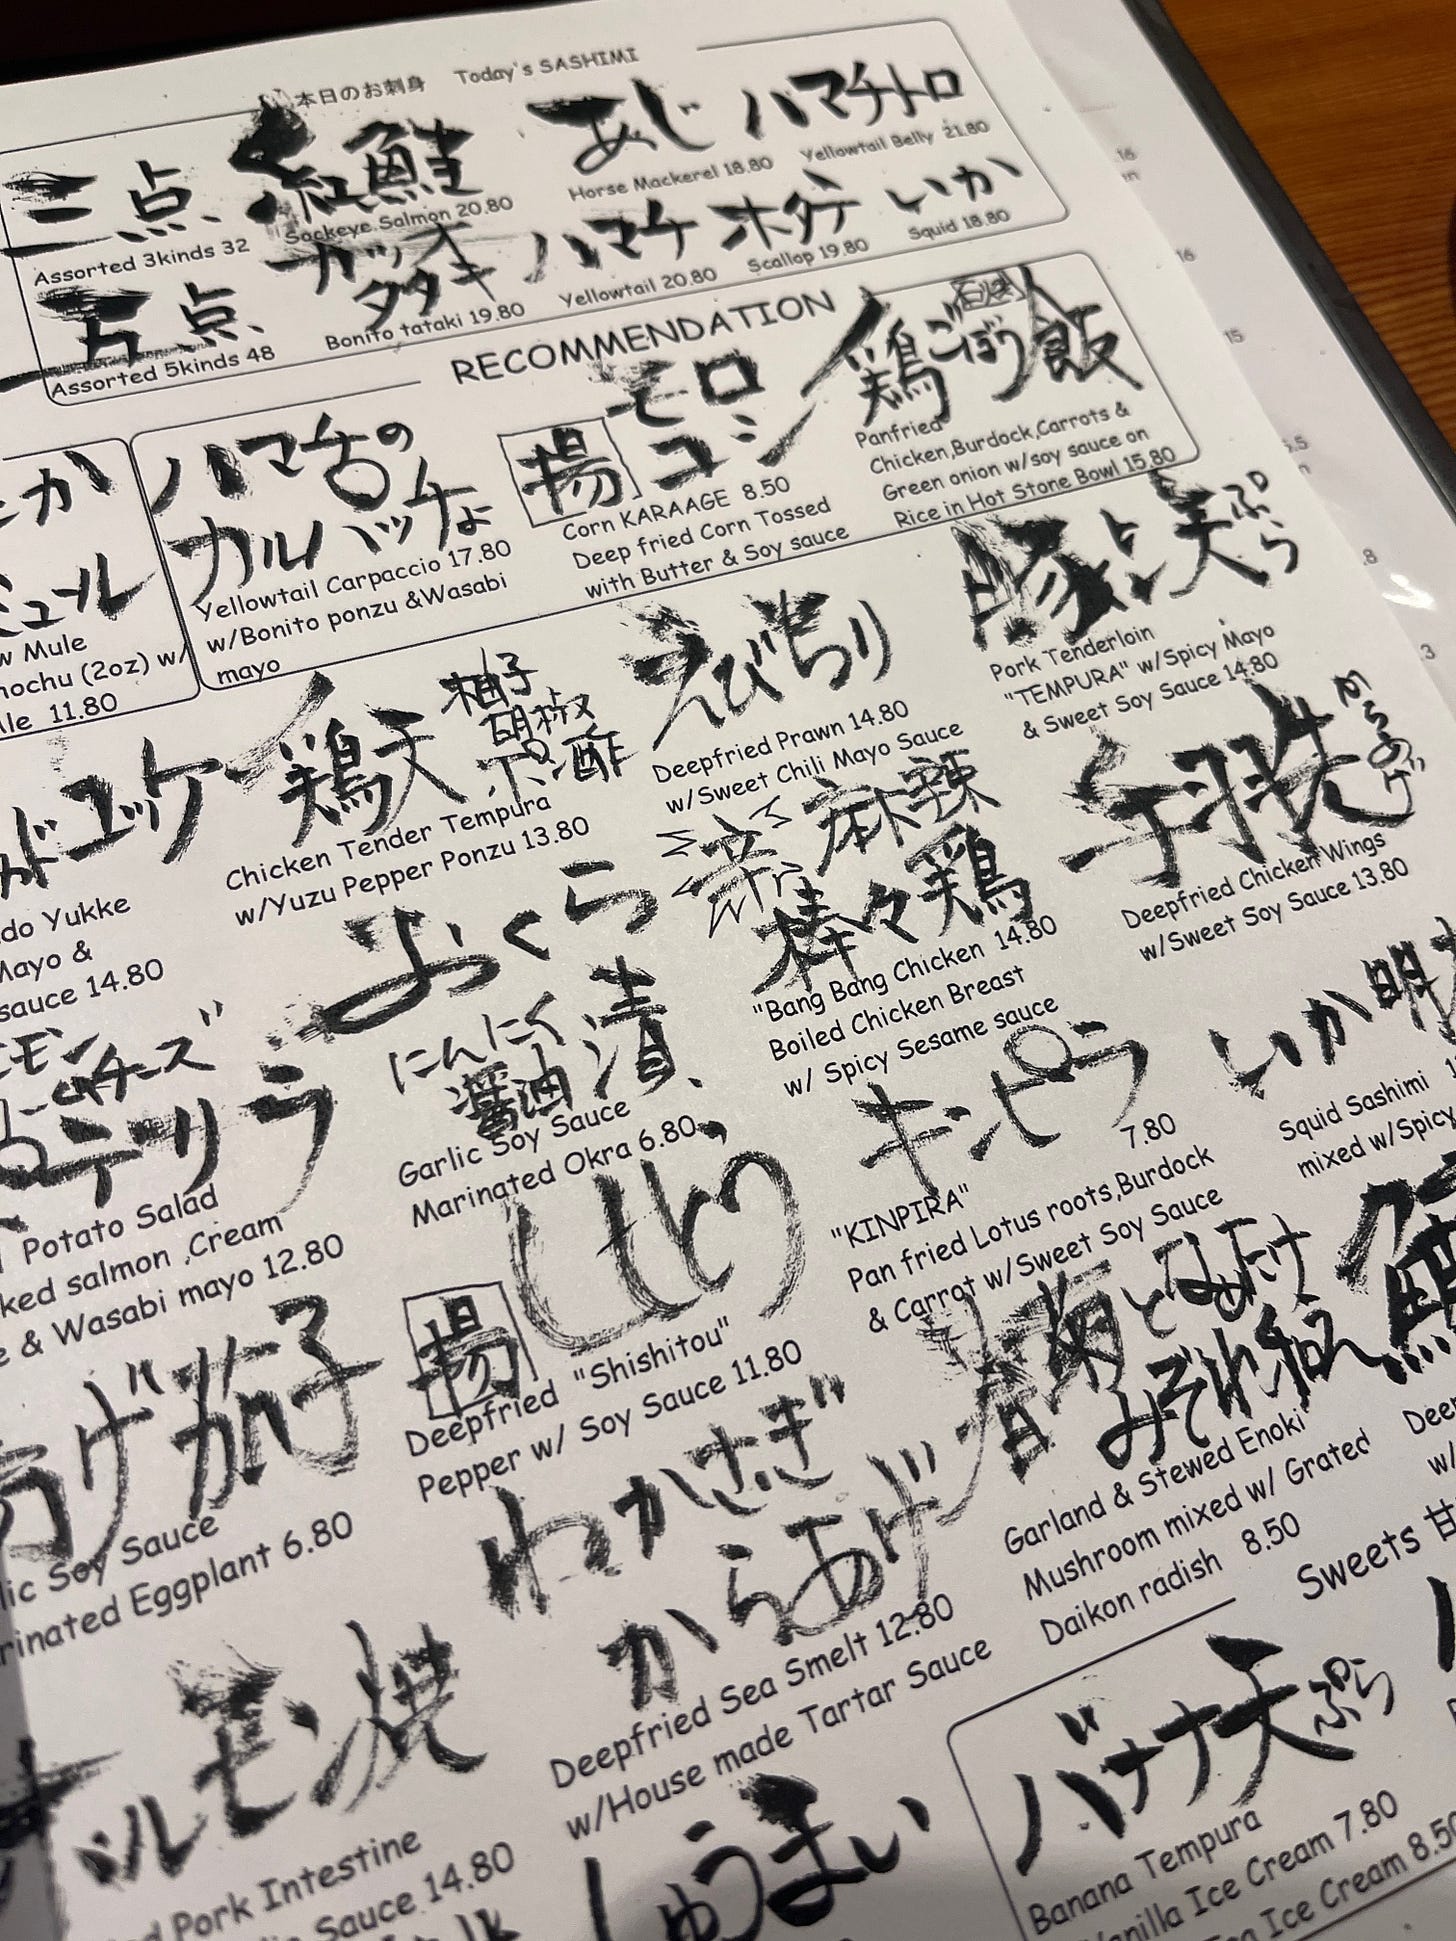 本日のお刺身 Today's SASHIMI
三点
Assorted 3kinds 32
紅鮭
Sockeye Salmon 20.80
あじ
Horse Mackerel 18.80
ハマチトロ
Yellowtail Belly 21.80
五点
Assorted 5kinds 48
カツオ
タタキ
Bonito tataki 19.80
ハマチ
Yellowtail 20.80
ホタテ
Scallop 19.80
いか
Squid 18.80
RECOMMENDATION
か
ミュール
w Mule
hochu (2oz) w/
le 11.80
ハマチの
カルパッチョ
Yellowtail Carpaccio 17.80
w/Bonito ponzu &Wasabi
mayo
揚
モロ
コシ
Corn KARAAGE 8.50
Deep fried Corn Tossed
with Butter & Soy sauce
石焼
鶏ごぼう飯
Panfried
Chicken,Burdock,Carrots &
Green onion w/soy sauce on
Rice in Hot Stone Bowl 15.80
ドユッケ
do Yukke
Mayo &
sauce 14.80
鶏天
柚子
胡椒
ポン酢
Chicken Tender Tempura
w/Yuzu Pepper Ponzu 13.80
えびちり
Deepfried Prawn 14.80
w/Sweet Chili Mayo Sauce
豚とろ天ぷら
Pork Tenderloin
"TEMPURA" w/Spicy Mayo
& Sweet Soy Sauce 14.80
モン
チーズ
ポテサラ
Potato Salad
ked salmon ,Cream
e & Wasabi mayo 12.80
おくら
にんにく
醤油漬
Garlic Soy Sauce
Marinated Okra 6.80
麻辣
棒々鶏
"Bang Bang Chicken 14.80
Boiled Chicken Breast
w/ Spicy Sesame sauce
手羽先
からあげ
Deepfried Chicken Wings
w/Sweet Soy Sauce 13.80
キンピラ
7.80
"KINPIRA"
Pan fried Lotus roots,Burdock
& Carrot w/Sweet Soy Sauce
いか明
Squid Sashimi 1
mixed w/Spicy
あげ茄子
lic Soy Sauce
rinated Eggplant 6.80
揚
ししとう
Deepfried "Shishitou"
Pepper w/ Soy Sauce 11.80
わかさぎ
からあげ
Deepfried Sea Smelt 12.80
w/House made Tartar Sauce
春菊となめたけ
みぞれ和え
Garland & Stewed Enoki
Mushroom mixed w/ Grated
Daikon radish 8.50
Deep
w/
ルモン焼
d Pork Intestine
Sauce 14.80
しゅうまい
Sweets 甘
バナナ天ぷら
Banana Tempura
Vanilla Ice Cream 7.80
Ice Cream 8.50